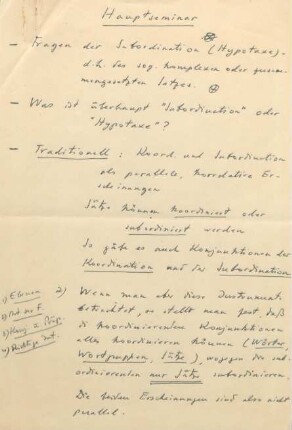 Hauptseminar
– Fragen der Subordination (Hypotaxe) –
d.h. des sog. komplexen oder zusam-
mengesetzten Satzes.
– Was ist überhaupt "Subordination" oder
"Hypotaxe"?
– Traditionell: Koord. und Subordination
als parallele, korrelative Er-
scheinungen
Sätze können koordiniert oder
subordiniert werden
So gäbe es auch Konjunktionen der
Koordination und der Subordination
1) Ebenen
3) Konj. = Präp.
2) Wenn man aber diese Instrumente
betrachtet, so stellt man fest, daß
die koordinierenden Konjunktionen
alles koordinieren können (Wörter,
Wortgruppen, Sätze), wogegen die sub-
ordinierenden nur Sätze subordinieren.
Die beiden Erscheinungen sind also nicht
parallel.